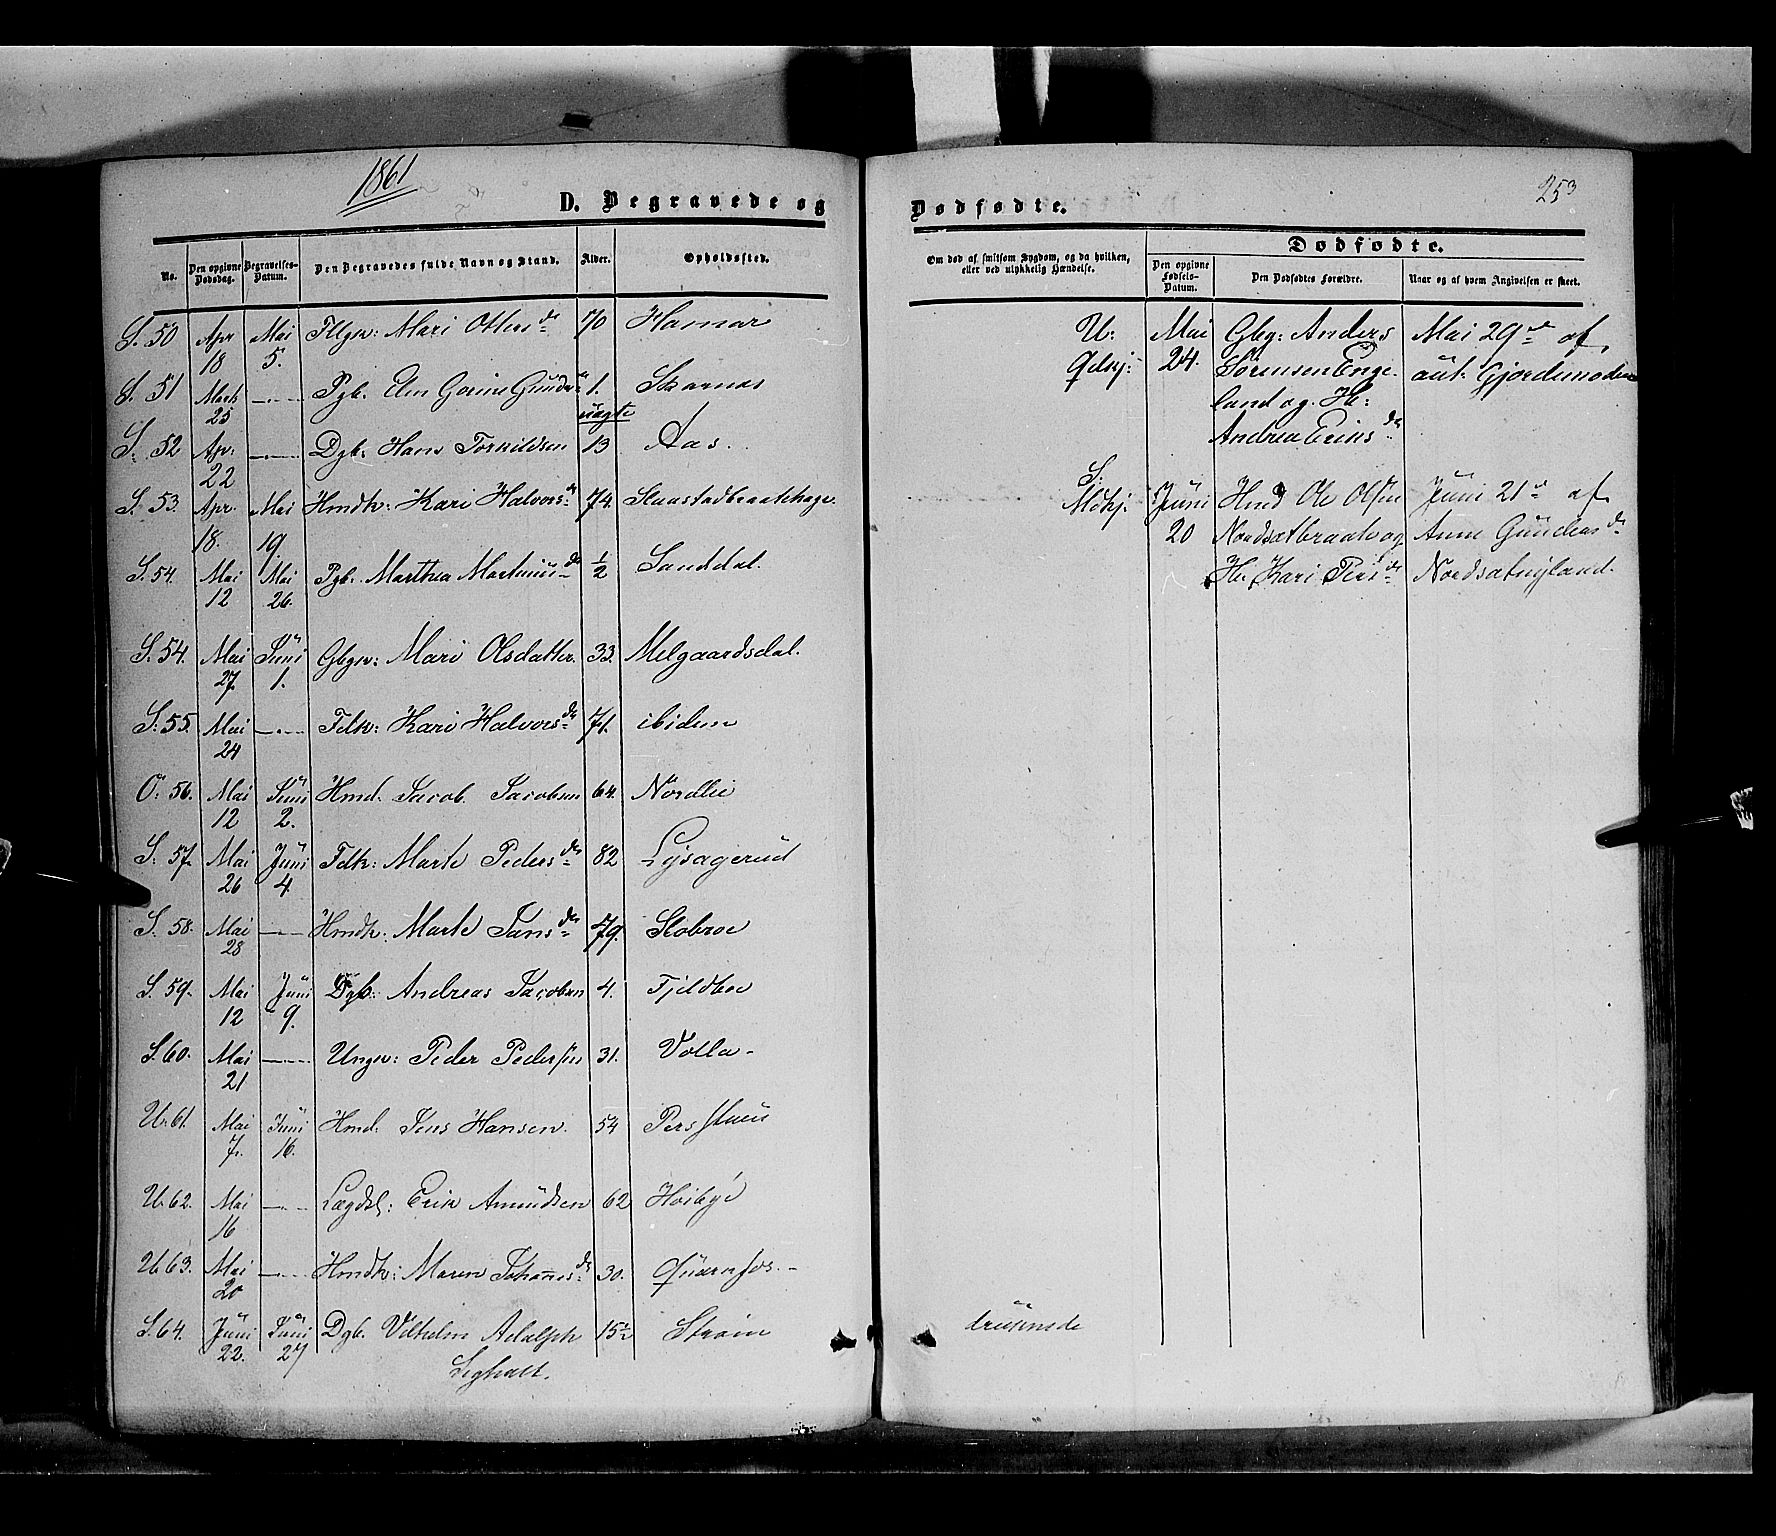 1861
253
D. Begravede og Dødfødte.
No.
Den opgivne Dødsdag.
Begravelses-Datum.
Den Begravedes fulde Navn og Stand.
Alder.
Opholdssted.
Om død af smitsom Sygdom, og da hvilken, eller ved ulykkelig Hændelse.
Dødfødte.
Den opgivne Fødsels-Datum.
Den Dødfødtes Forældre.
Naar og af hvem Angivelsen er skeet.
S. 50 Apr 18 Mai 5. Mari Ottersdr 70 Hamar
S. 51 Marts 25 — Pgb. 1. Skarnæs
uægte
S. 52 Apr. 22 — Dgb. Hans Torkildsen 13 Aas.
S. 53. Apr. 18. Mai 19. Hmdk: Kari Halvorsdr 74.
S. 54. Mai 12 Mai 26. Pgb. Marthea Martinusdr 1/2 Sanddal.
S. 54. Mai 27. Juni 1. Gbgm: Mari Olsdatter 33. Melgaardsdal.
S: 55. Mai 24 — Fdk: Kari Halvorsdr 71. ibidem
O: 56. Mai 12 Juni 2. Hmd. Jacob Jacobsen 64. Nordlie
S: 57. Mai 26 Juni 4. Fdk: Marte Pedersdr 82 Lysagerud
S. 58. Mai 28 — Hmdk: Marte Jansdr 79. Slobroe
S. 59. Mai 12 Juni 9. Dgb: Andreas Jacobsen 4. Fjeldboe
S. 60. Mai 21 — Ungm: Peder Pedersen 31. Volla
U. 61. Mai 7. Juni 16. Hmd. Jens Hansen. 54 Persstuen
U. 62. Mai 16 — Lægdsl: Erik Amundsen 62 Høibye
U. 63. Mai 20 — Hmdk: Maren Johannesdr 30. Quærnfos.
S. 64. Juni 22. Juni 27 Dgb. Vilhelm Adolph 15 Strøm
druknede
U: Mai Gbg: Anders Mai 29de af
24. Sørensen Enge- aut. Gjordemoder
land og H:
Andrea Eriksdr
S: Juni Hmd Ole Olsen Juni 21de af
20 Nordsætbraate og Anne Gundersdr
H: Kari Persdr Nordsætnyland.